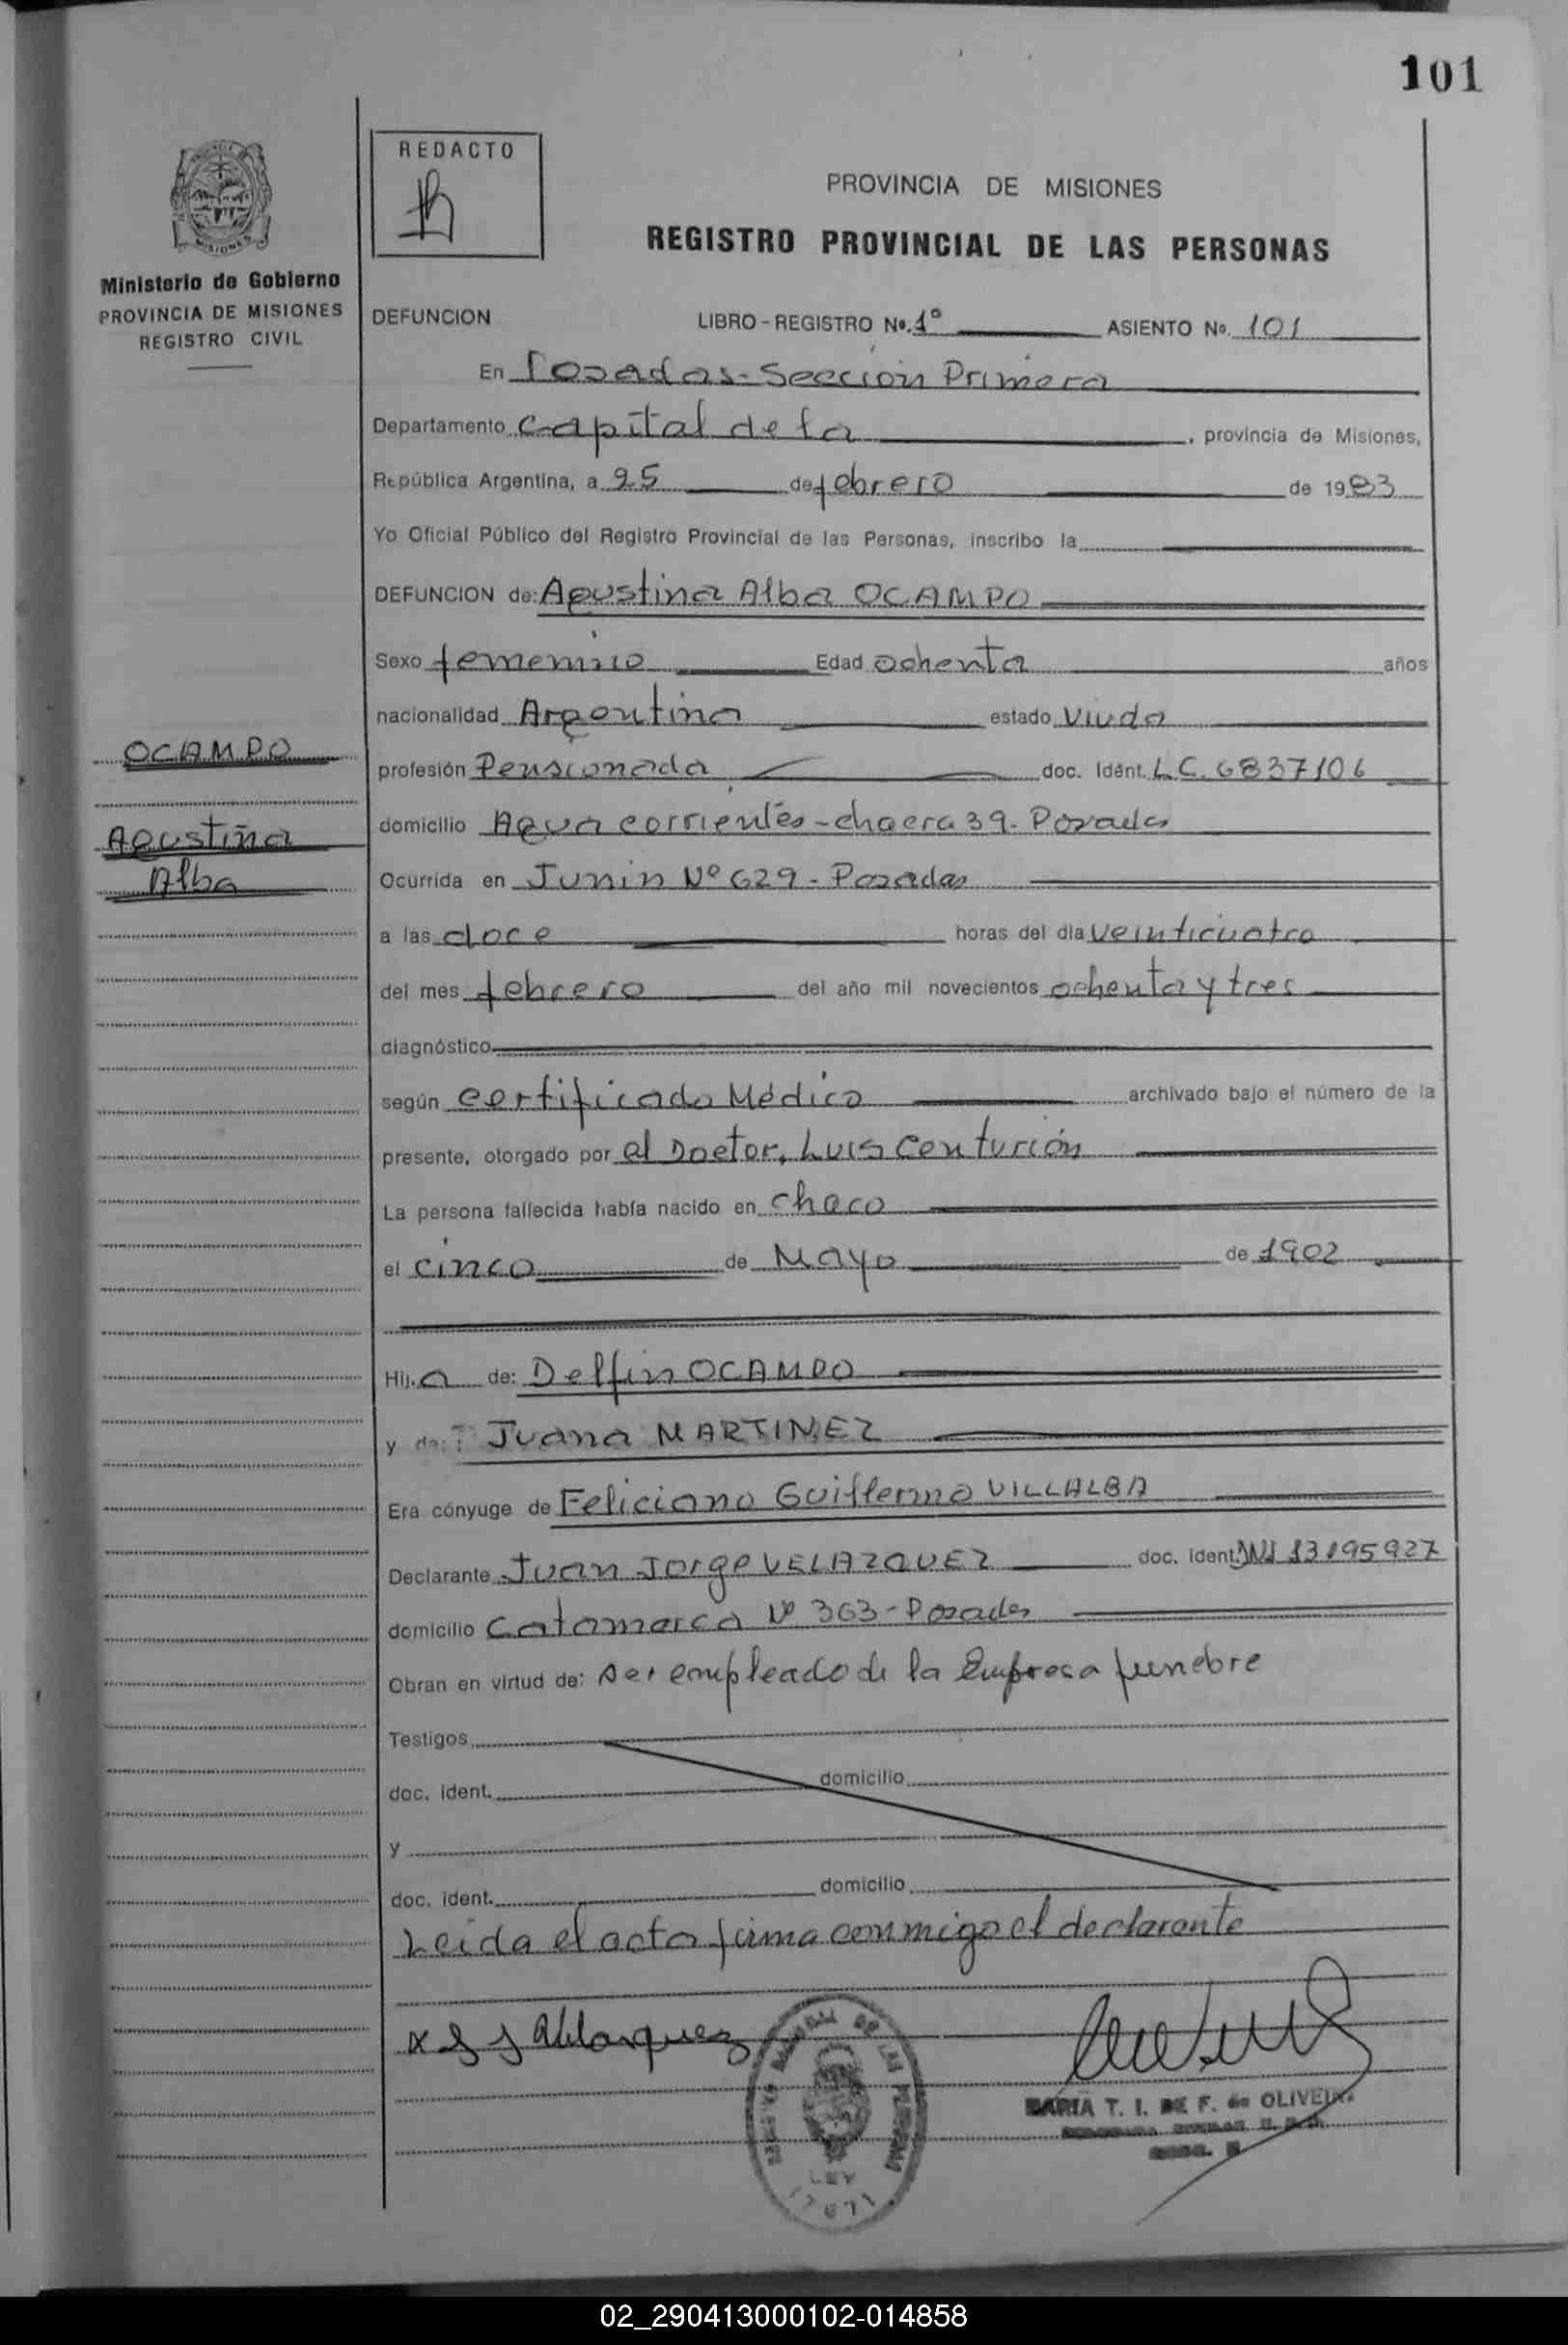 101
REDACTO
PROVINCIA DE MISIONES
REGISTRO PROVINCIAL DE LAS PERSONAS
MISIONES
Ministerio de Gobierno
PROVINCIA DE MISIONES
REGISTRO CIVIL
DEFUNCION LIBRO - REGISTRO Nº. 1º ASIENTO Nº. 101
En Posadas - Sección Primera
Departamento Capital de la , provincia de Misiones,
República Argentina, a 25 de febrero de 1983
Yo Oficial Público del Registro Provincial de las Personas, inscribo la
DEFUNCION de: Agustina Alba OCAMPO
Sexo femenino Edad ochenta años
nacionalidad Argentina estado Viuda
OCAMPO
profesión Pensionada doc. Idént. L.C. 6837106
Agustina
domicilio Agua corrientes - chacra 39 - Posadas
Alba
Ocurrida en Junín Nº 629 - Posadas
a las doce horas del día veinticuatro
del mes febrero del año mil novecientos ochenta y tres
diagnóstico
según certificado Médico archivado bajo el número de la
presente, otorgado por el Doctor, Luis Centurión
La persona fallecida había nacido en chaco
el cinco de Mayo de 1902
Hij.a de: Delfin OCAMPO
y de: Juana MARTINEZ
Era cónyuge de Feliciano Guillermo VILLALBA
Declarante Juan Jorge VELAZQUEZ doc. ident. DNI 13195927
domicilio Catamarca Nº 363 - Posadas
Obran en virtud de: ser empleado de la Empresa funebre
Testigos
doc. ident. domicilio
y
doc. ident. domicilio
Leída el acta firma conmigo el declarante
MARIA T. I. DE F. de OLIVEIRA
LEY
02_290413000102-014858